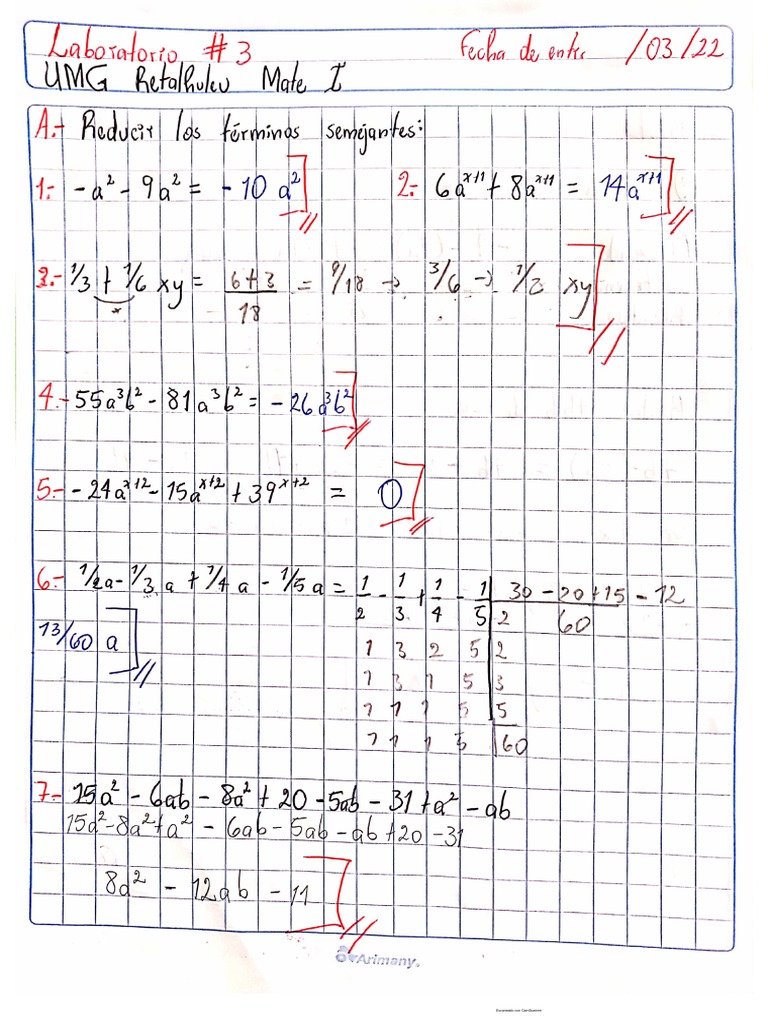 Laboratorio #3 Fecha de entr /03/22
UMG Retalhuleu Mate I
A.- Reducir los términos semejantes:
1.- -a² - 9a² = -10 a² 2.- 6aˣ⁺¹ + 8aˣ⁺¹ = 14aˣ⁺¹
3.- 1/3 + 1/6 xy = 6+3/18 = 9/18 → 3/6 → 1/2 xy
4.- -55a³b² - 81a³b² = -26a³b²
5.- -24aˣ⁺² - 15aˣ⁺² + 39ˣ⁺² = 0
6.- 1/2a - 1/3 a + 1/4 a - 1/5 a = 1/2 - 1/3 + 1/4 - 1/5 30 - 20 + 15 - 12
2 60
13/60 a 1 3 2 5 2
1 3 1 5 3
1 1 1 5 5
1 1 1 5 60
7.- 15a² - 6ab - 8a² + 20 - 5ab - 31 + a² - ab
15a² - 8a² + a² - 6ab - 5ab - ab + 20 - 31
8a² - 12ab - 11
Arimany.
Escaneado con CamScanner